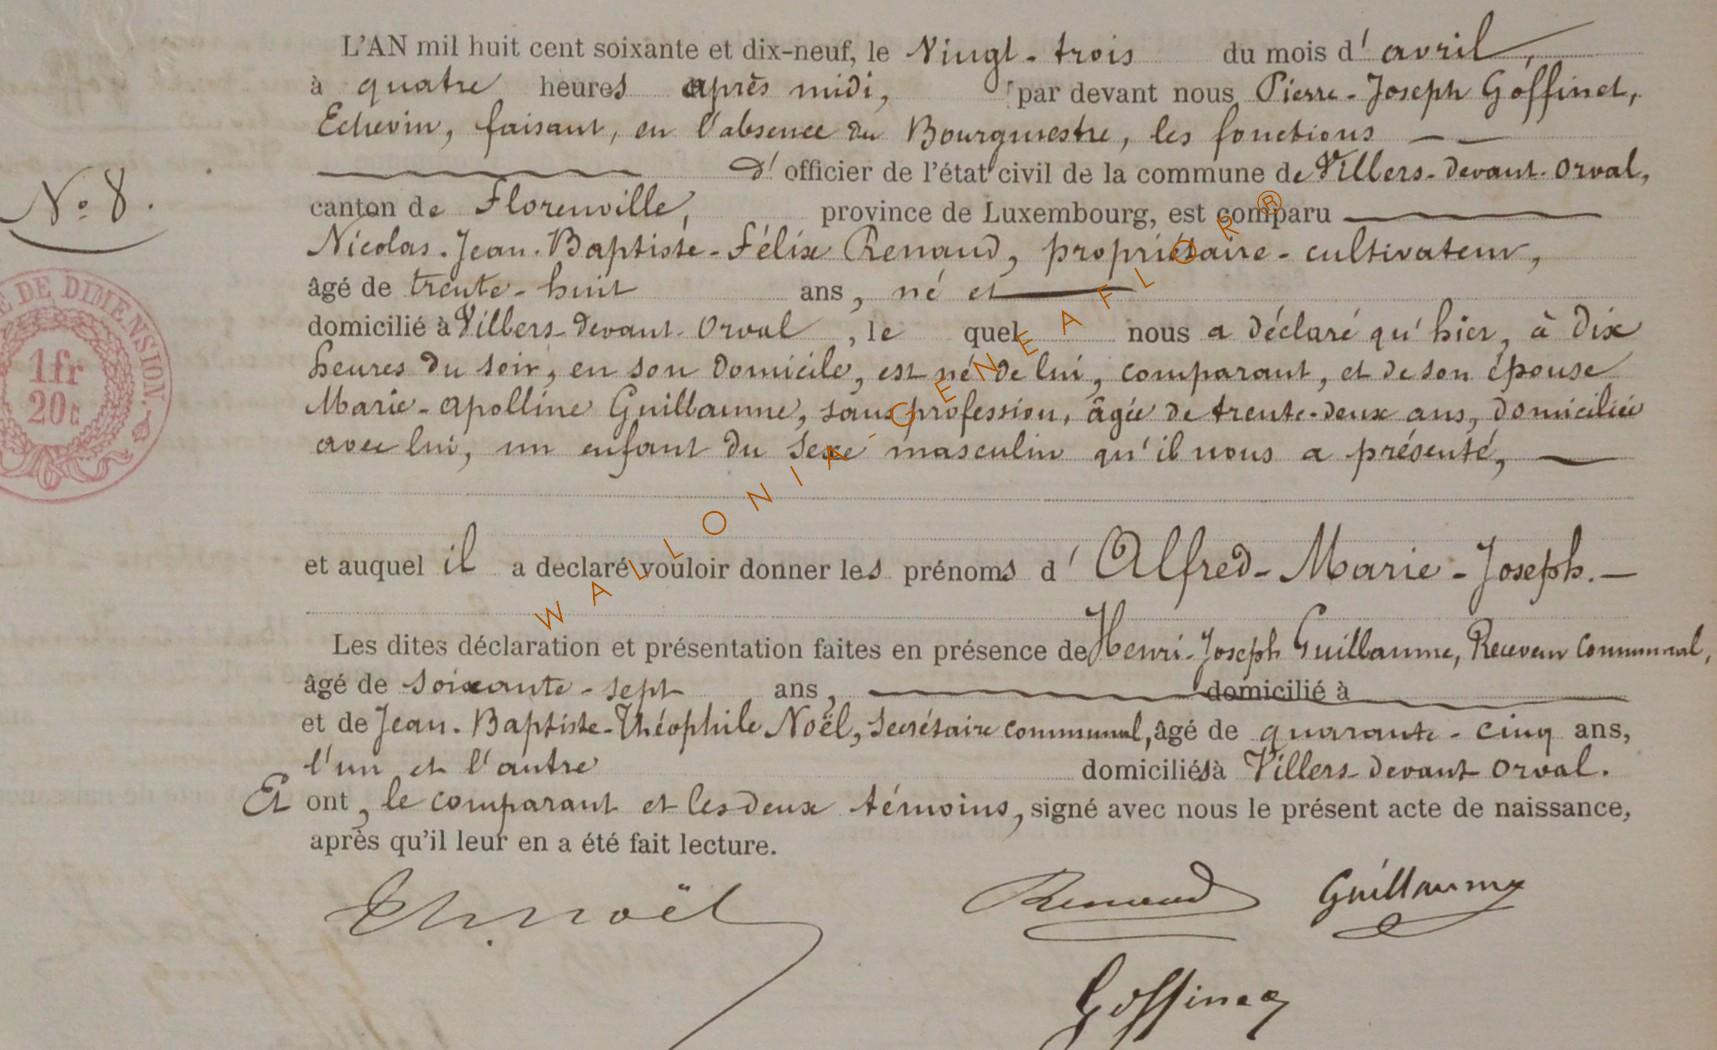 L'AN mil huit cent soixante et dix-neuf, le Vingt-trois du mois d'avril,
à quatre heures après midi, par devant nous Pierre-Joseph Goffinet,
Echevin, faisant, en l'absence du Bourgmestre, les fonctions
d'officier de l'état civil de la commune de Villers-devant-Orval,
N° 8.
canton de Florenville, province de Luxembourg, est comparu
Nicolas-Jean-Baptiste-Félix Renaud, propriétaire-cultivateur,
âgé de trente-huit ans, né et
domicilié à Villers-devant-Orval, le quel nous a déclaré qu'hier, à dix
heures du soir, en son domicile, est né de lui, comparant, et de son épouse
Marie-Apolline Guillaume, sans profession, âgée de trente-deux ans, domiciliée
avec lui, un enfant du sexe masculin qu'il nous a présenté,
DE DIMENSION
1fr
20c
et auquel il a declaré vouloir donner les prénoms d'Alfred-Marie-Joseph.
Les dites déclaration et présentation faites en présence de Henri-Joseph Guillaume, Receveur Communal,
âgé de soixante-sept ans, domicilié à
et de Jean-Baptiste-Théophile Noël, secrétaire communal, âgé de quarante-cinq ans,
l'un et l'autre domiciliés à Villers-devant-Orval.
Et ont, le comparant et les deux témoins, signé avec nous le présent acte de naissance,
après qu'il leur en a été fait lecture.
Th. Noël Renaud Guillaume
Goffinet
WALLONIA-GENEAFLOR®